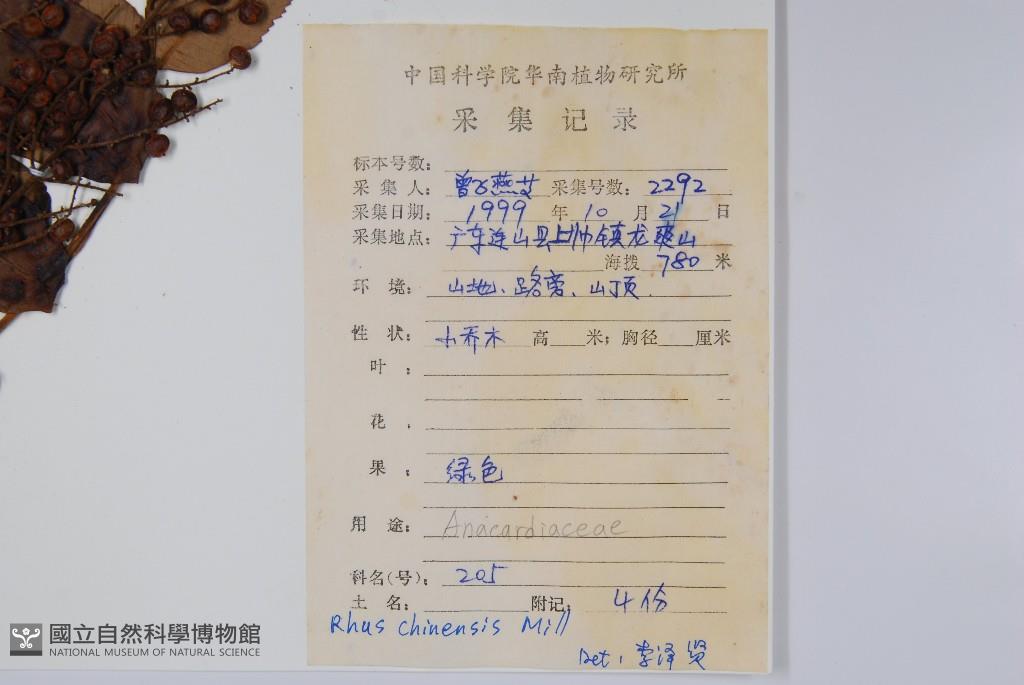 中国科学院华南植物研究所
采集记录
标本号数:
采集人: 曾飞燕 采集号数: 2292
采集日期: 1999 年 10 月 21 日
采集地点: 广东连山县上帅镇龙 山
海拨 780 米
环境: 山地、路旁、山顶.
性状: 小乔木 高 米; 胸径 厘米
叶:
花.
果: 绿色
用途: Anacardiaceae
科名(号): 205
土名: 附记: 4份
Rhus chinensis Mill
Det. 李泽贤
國立自然科學博物館
NATIONAL MUSEUM OF NATURAL SCIENCE